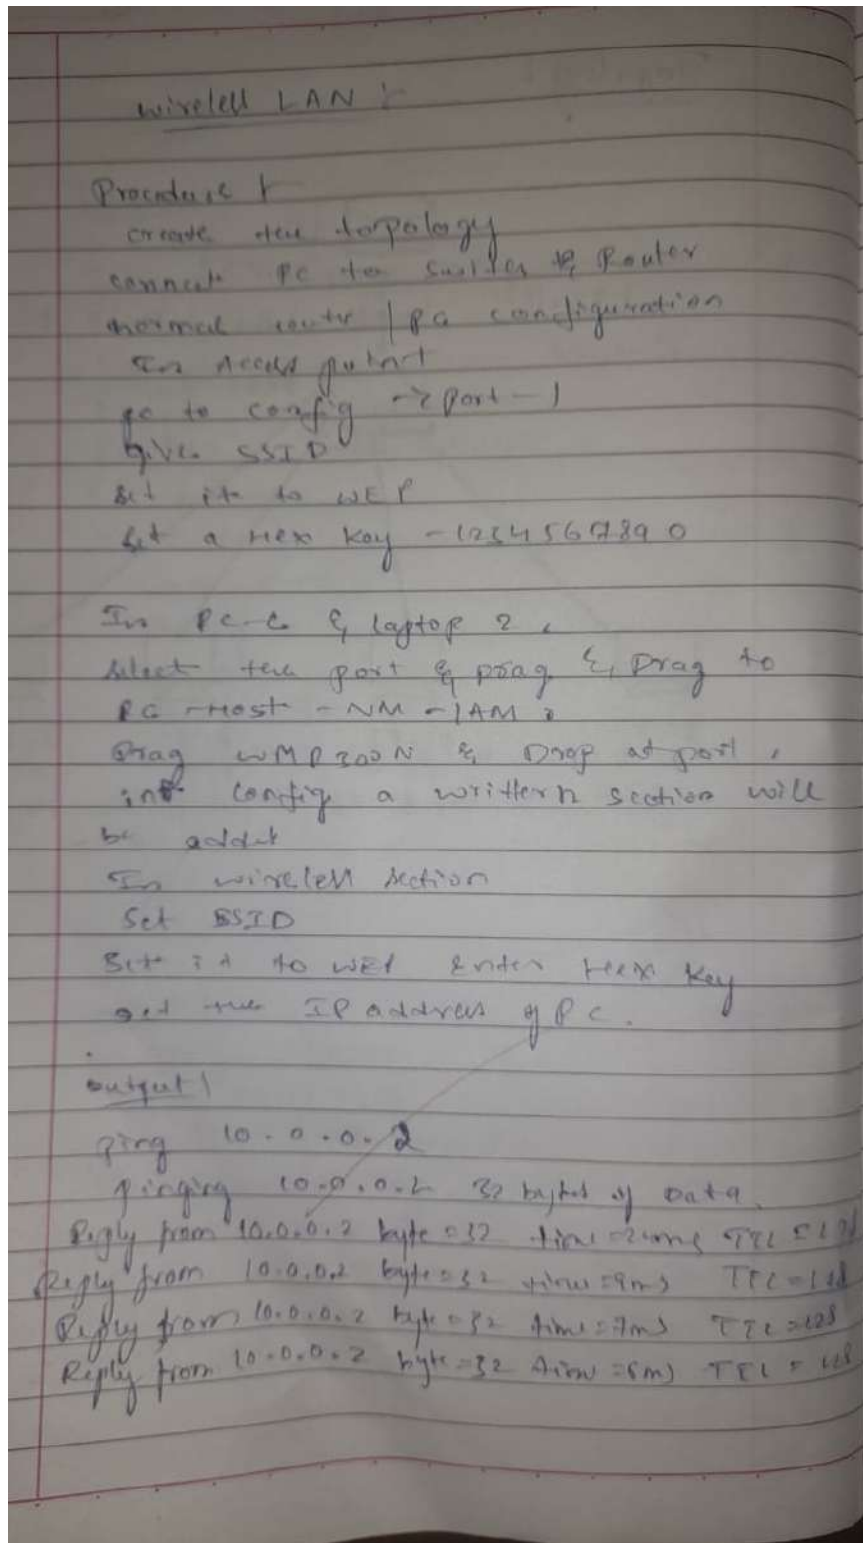 wireless LAN :-
Procedure :
create the topology
connect PC to switches & Router
normal router / PC configuration
In Access point
go to config -> Port - 1
give SSID
Set it to WEP
Set a Hex Key - 1234567890
In PC-C & laptop 2,
select the port & & Drag to
PC - Host - NM - 1AM
Drag WMP300N & Drop at port,
in config a section will
be added
In wireless section
Set SSID
Set it to WEP Enter Hex Key
the IP address of PC.
output
ping 10.0.0.2
pinging 10.0.0.2 32 bytes of Data.
Reply from 10.0.0.2 byte=32 time= TTL=
Reply from 10.0.0.2 byte=32 time=9ms TTL=128
Reply from 10.0.0.2 byte=32 time=7ms TTL=128
Reply from 10.0.0.2 byte=32 time=6ms TTL=128